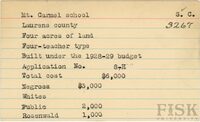 Mt. Carmel school S. C.
Laurens county 3267
Four acres of land
Four-teacher type
Built under the 1928-29 budget
Application No. 8-E
Total cost $6,000
Negroes $3,000
Whites
Public 2,000
Rosenwald 1,000
FISK